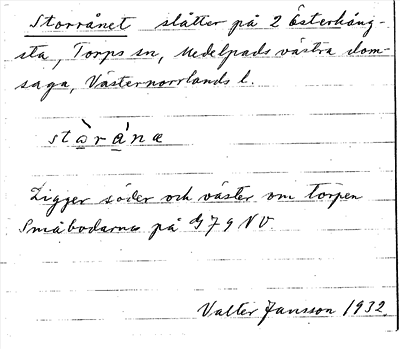 Storrånet slåtter på 2 Österhång-
sta, Torps sn, Medelpads västra dom-
saga, Västernorrlands l.
stòránæ
Ligger söder och väster om torpen
Småbodarna på G 79 NV.
Valter Jansson 1932.